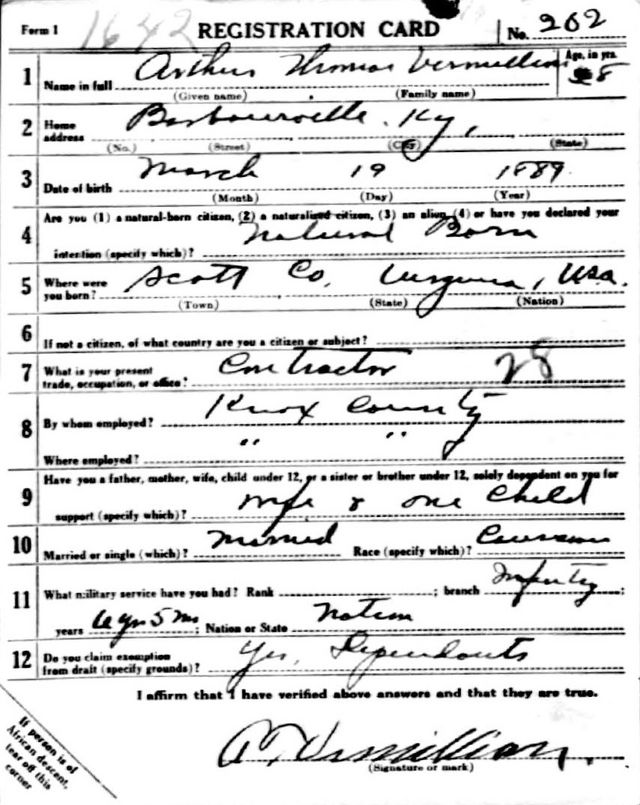 Form 1 1642 REGISTRATION CARD No. 202
1 Name in full Arthur Thomas Vermillion Age, in yrs. 28
(Given name) (Family name)
2 Home address Barbourville, Ky,
(No.) (Street) (City) (State)
3 Date of birth March 19 1889
(Month) (Day) (Year)
Are you (1) a natural-born citizen, (2) a naturalized citizen, (3) an alien, (4) or have you declared your
4 intention (specify which)? Natural Born
5 Where were you born? Scott Co, Virginia, USA.
(Town) (State) (Nation)
6 If not a citizen, of what country are you a citizen or subject?
7 What is your present trade, occupation, or office? Contractor 28
8 By whom employed? Knox County
Where employed? " "
Have you a father, mother, wife, child under 12, or a sister or brother under 12, solely dependent on you for
9 support (specify which)? Wife & one Child
10 Married or single (which)? Married Race (specify which)?
11 What military service have you had? Rank ; branch Infantry ;
years 6 yrs 5 ms ; Nation or State Nation
12 Do you claim exemption from draft (specify grounds)? Yes, Dependents
I affirm that I have verified above answers and that they are true.
A T Vermillion.
(Signature or mark)
If person is of
African descent,
tear off this
corner